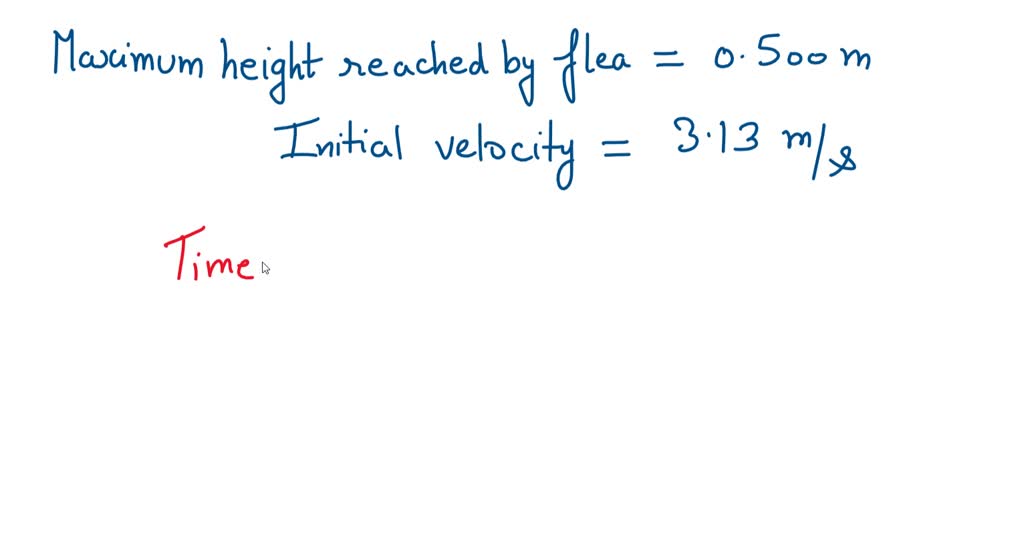 Maximum height reached by flea = 0.500 m
Initial velocity = 3.13 m/s
Time